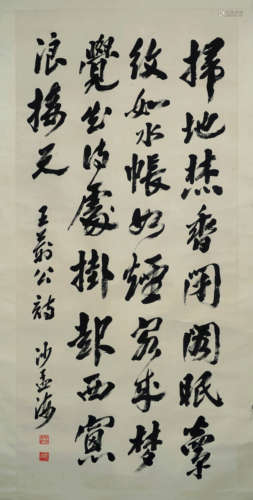 掃地焚香閉閣眠簟
紋如水帳如煙客來夢
覺知何處掛起西窗
浪接天 王荊公詩 沙孟海